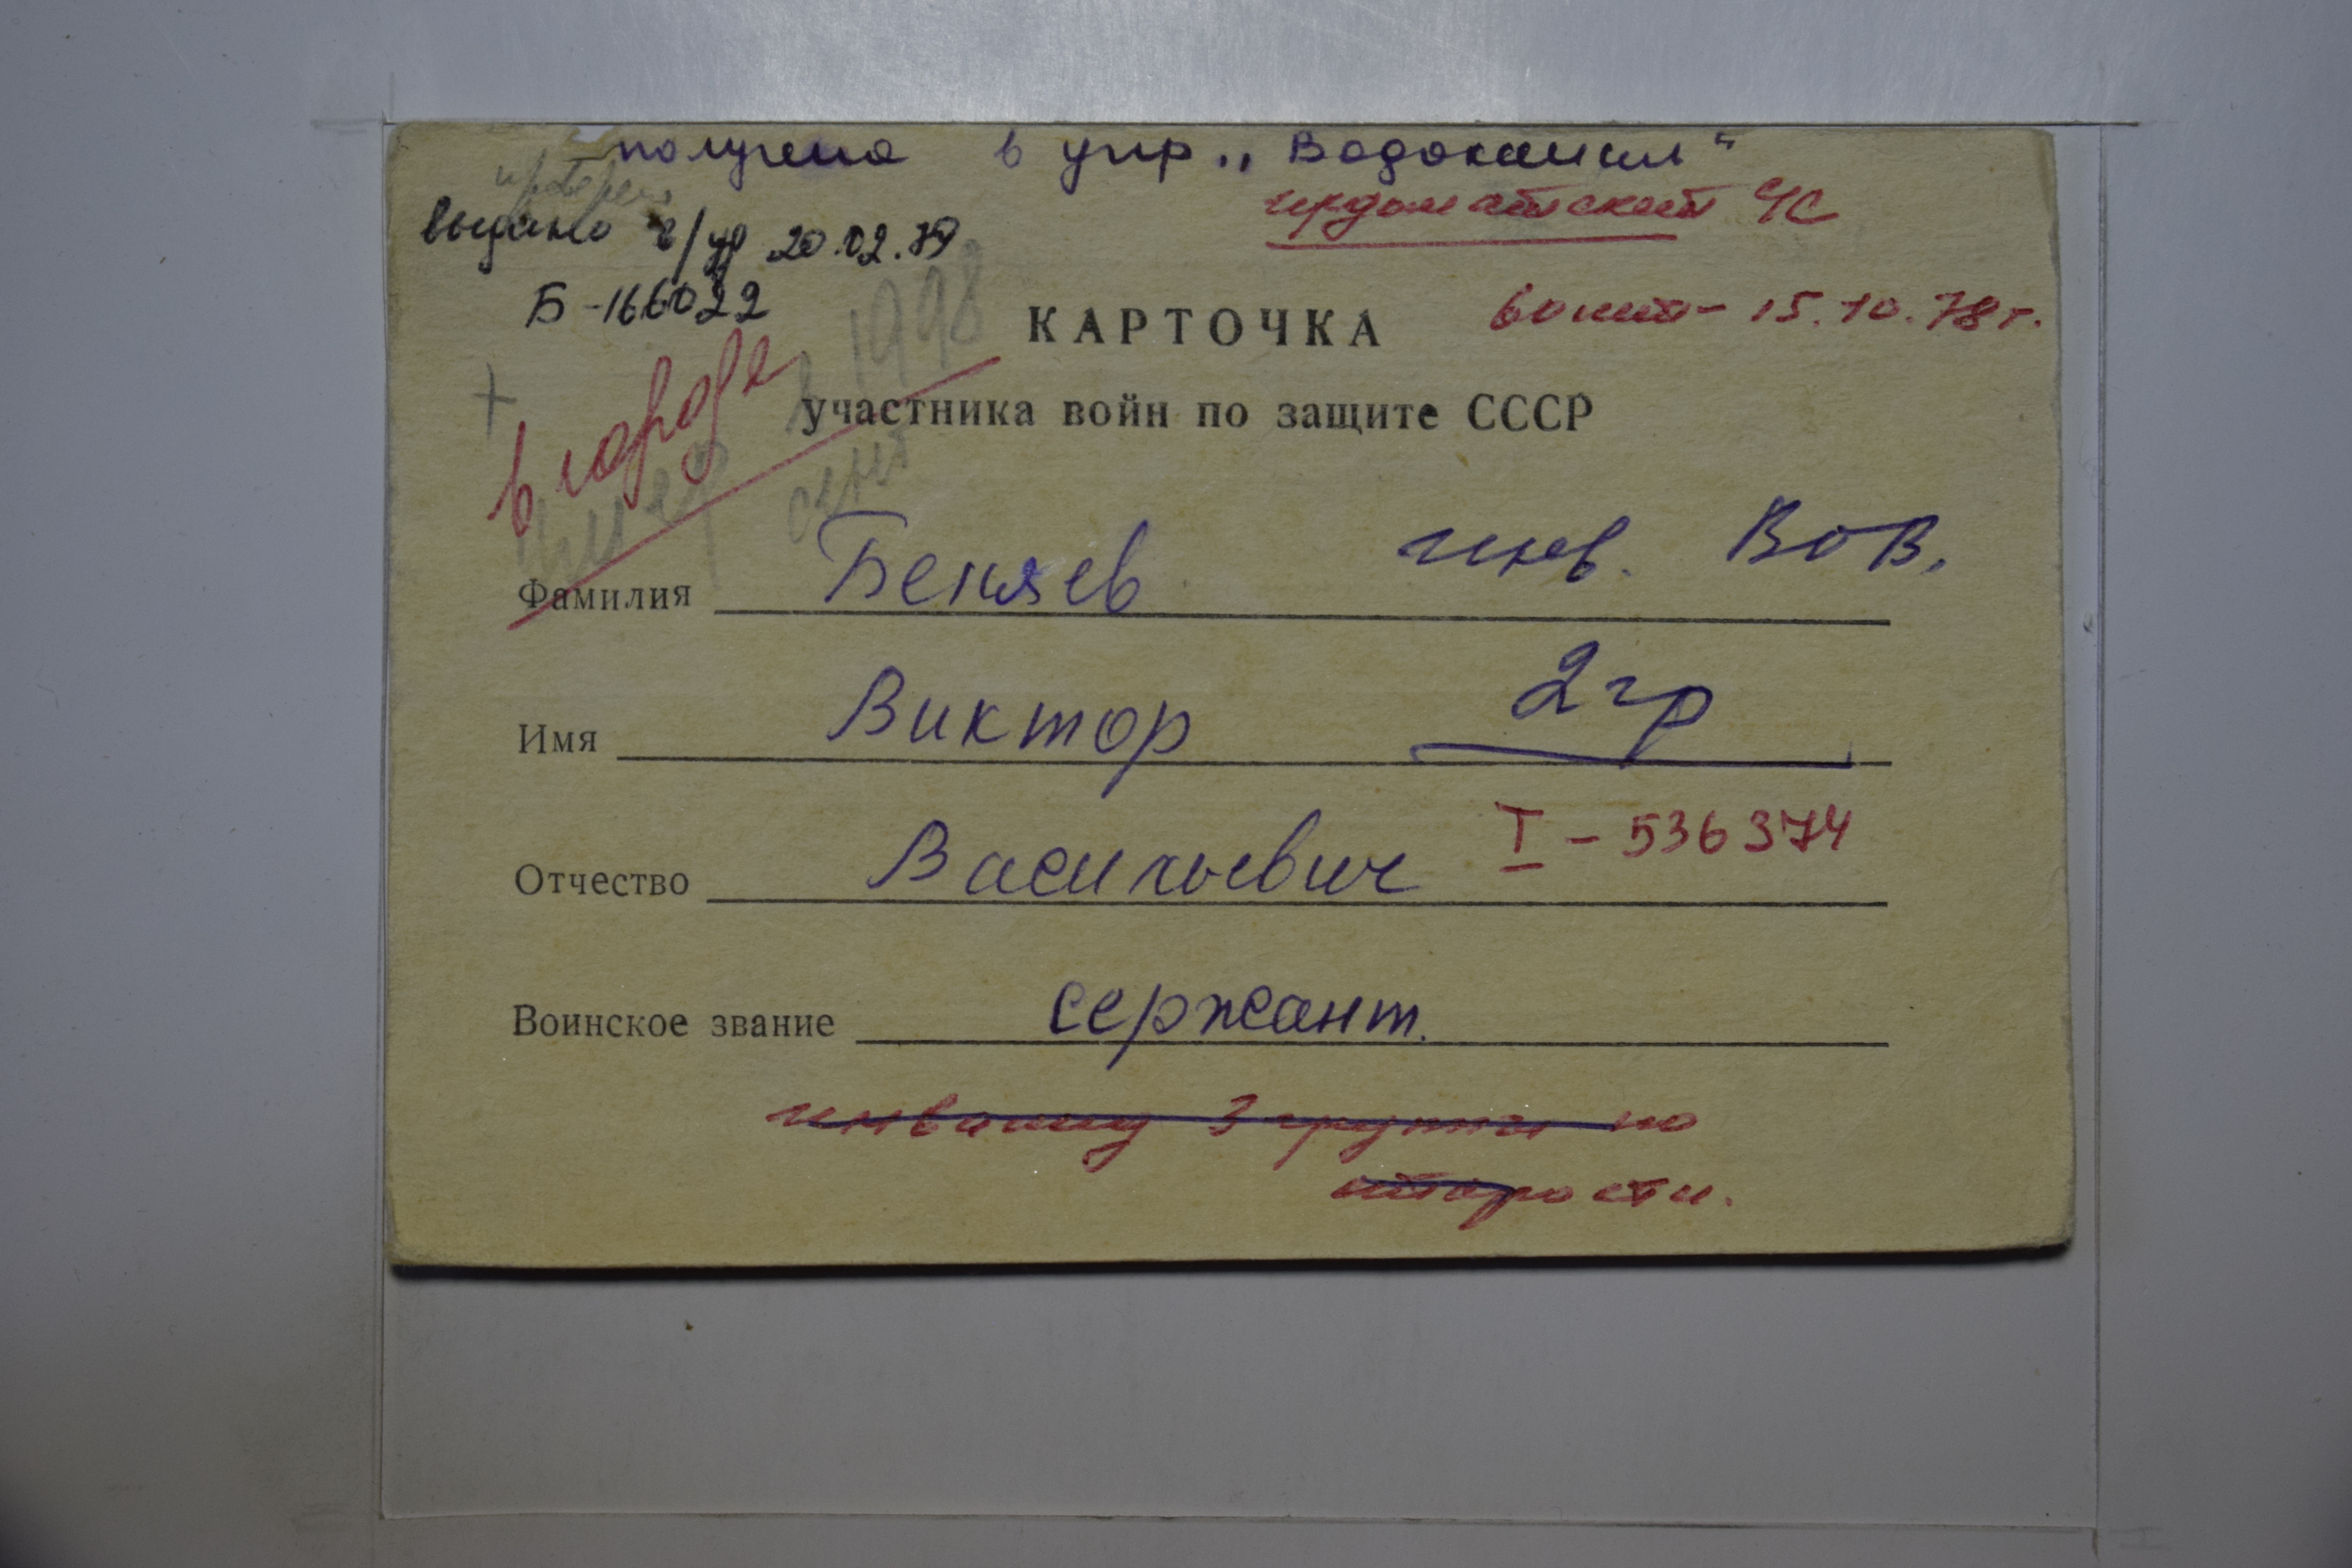 получена в упр. „Водоканал“
выдано в/уд 20.02.79
Б-166022
ЧС
15.10.78 г.
в 1998
+
в городе
умер
сент
КАРТОЧКА
участника войн по защите СССР
Фамилия Беняев инв. ВОВ.
Имя Виктор 2гр
Отчество Васильевич I - 536374
Воинское звание сержант.
инвалид 3 группы по
старости.